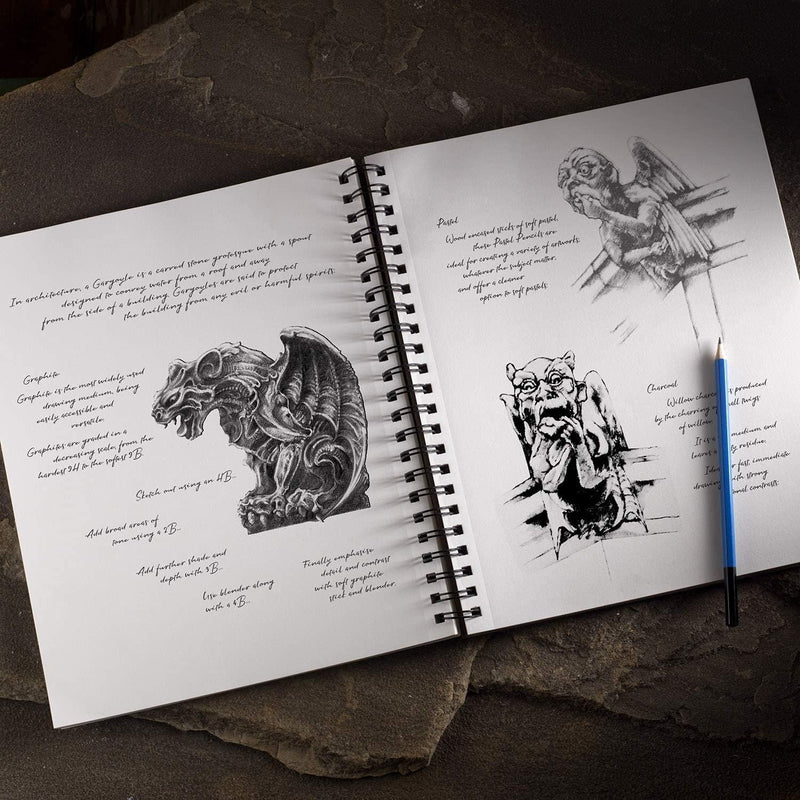 In architecture, a Gargoyle is a carved stone grotesque with a spout
designed to convey water from a roof and away
from the side of a building. Gargoyles are said to protect
the building from any evil or harmful spirits.
Graphite
Graphite is the most widely used
drawing medium, being
easily accessible and
versatile.
Graphites are graded in a
decreasing scale, from the
hardest 9H to the softest 9B.
Sketch out using an 4B...
Add broad areas of
tone using a 2B...
Add further shade and
depth with 3B...
Use blender along
with a 6B...
Finally emphasise
detail and contrast
with soft graphite
stick and blender.
Pastel
Wood encased sticks of soft pastel,
these Pastel Pencils are
ideal for creating a variety of artworks,
whatever the subject matter,
and offer a cleaner
option to soft pastels.
Charcoal
Willow produced
by the charring twigs
of willow.
It is medium and
leaves residue.
fast, immediate
with strong
contrasts.